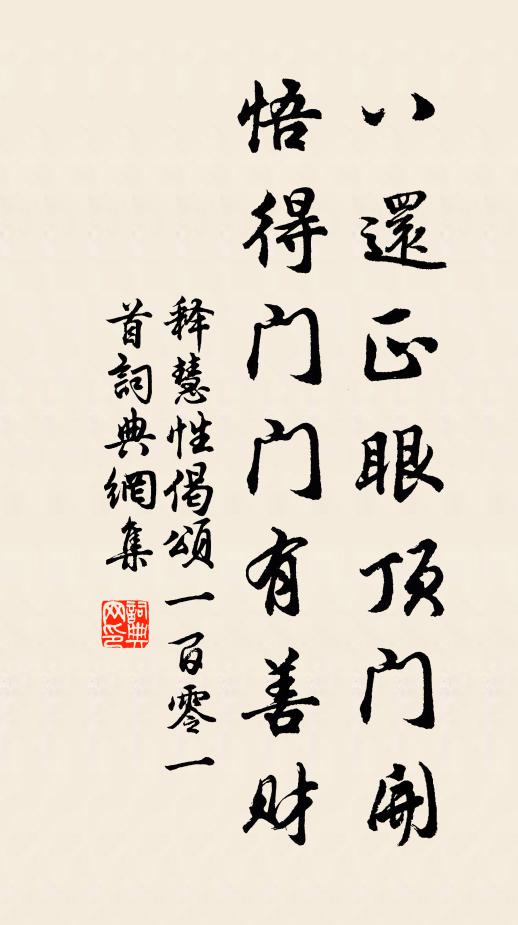 八還正眼頂門開
悟得門門有善財
释慧性偈頌一百零一
首詞典網集
詞典網印